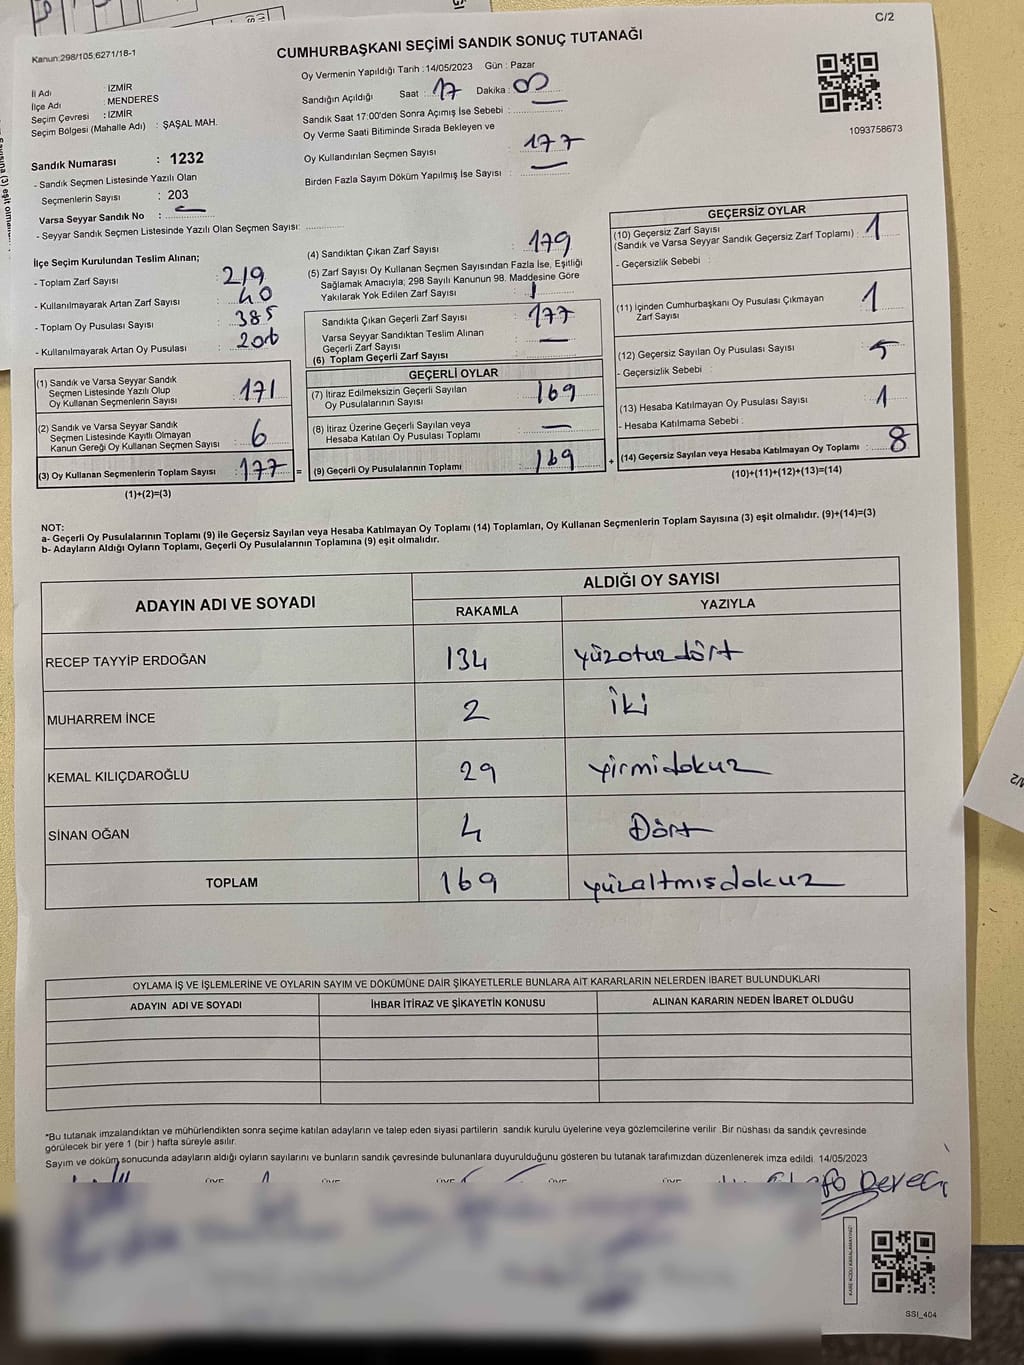 C/2
Kanun:298/105,6271/18-1
CUMHURBAŞKANI SEÇİMİ SANDIK SONUÇ TUTANAĞI
İl Adı : İZMİR
İlçe Adı : MENDERES
Seçim Çevresi : İZMİR
Seçim Bölgesi (Mahalle Adı) : ŞAŞAL MAH.
Sandık Numarası : 1232
- Sandık Seçmen Listesinde Yazılı Olan
Seçmenlerin Sayısı : 203
Varsa Seyyar Sandık No : —
- Seyyar Sandık Seçmen Listesinde Yazılı Olan Seçmen Sayısı:
Oy Vermenin Yapıldığı Tarih :14/05/2023 Gün : Pazar
Sandığın Açıldığı Saat : 17 Dakika : 00
Sandık Saat 17:00'den Sonra Açımış İse Sebebi : —
Oy Verme Saati Bitiminde Sırada Bekleyen ve
Oy Kullandırılan Seçmen Sayısı : 177
Birden Fazla Sayım Döküm Yapılmış İse Sayısı : —
1093758673
İlçe Seçim Kurulundan Teslim Alınan;
- Toplam Zarf Sayısı : 219
- Kullanılmayarak Artan Zarf Sayısı : 40
- Toplam Oy Pusulası Sayısı : 385
- Kullanılmayarak Artan Oy Pusulası : 206
(1) Sandık ve Varsa Seyyar Sandık
Seçmen Listesinde Yazılı Olup
Oy Kullanan Seçmenlerin Sayısı : 171
(2) Sandık ve Varsa Seyyar Sandık
Seçmen Listesinde Kayıtlı Olmayan
Kanun Gereği Oy Kullanan Seçmen Sayısı : 6
(3) Oy Kullanan Seçmenlerin Toplam Sayısı : 177 =
(1)+(2)=(3)
(4) Sandıktan Çıkan Zarf Sayısı : 179
(5) Zarf Sayısı Oy Kullanan Seçmen Sayısından Fazla İse, Eşitliği
Sağlamak Amacıyla; 298 Sayılı Kanunun 98. Maddesine Göre
Yakılarak Yok Edilen Zarf Sayısı : 1
Sandıkta Çıkan Geçerli Zarf Sayısı : 177
Varsa Seyyar Sandıktan Teslim Alınan
Geçerli Zarf Sayısı : —
(6) Toplam Geçerli Zarf Sayısı :
GEÇERLİ OYLAR
(7) İtiraz Edilmeksizin Geçerli Sayılan
Oy Pusulalarının Sayısı : 169
(8) İtiraz Üzerine Geçerli Sayılan veya
Hesaba Katılan Oy Pusulası Toplamı : —
(9) Geçerli Oy Pusulalarının Toplamı : 169 +
GEÇERSİZ OYLAR
(10) Geçersiz Zarf Sayısı
(Sandık ve Varsa Seyyar Sandık Geçersiz Zarf Toplamı) : 1
- Geçersizlik Sebebi :
(11) İçinden Cumhurbaşkanı Oy Pusulası Çıkmayan
Zarf Sayısı : 1
(12) Geçersiz Sayılan Oy Pusulası Sayısı : 5
- Geçersizlik Sebebi :
(13) Hesaba Katılmayan Oy Pusulası Sayısı : 1
- Hesaba Katılmama Sebebi :
(14) Geçersiz Sayılan veya Hesaba Katılmayan Oy Toplamı : 8
(10)+(11)+(12)+(13)=(14)
NOT:
a- Geçerli Oy Pusulalarının Toplamı (9) ile Geçersiz Sayılan veya Hesaba Katılmayan Oy Toplamı (14) Toplamları, Oy Kullanan Seçmenlerin Toplam Sayısına (3) eşit olmalıdır. (9)+(14)=(3)
b- Adayların Aldığı Oyların Toplamı, Geçerli Oy Pusulalarının Toplamına (9) eşit olmalıdır.
ADAYIN ADI VE SOYADI ALDIĞI OY SAYISI
RAKAMLA YAZIYLA
RECEP TAYYİP ERDOĞAN 134 yüzotuzdört
MUHARREM İNCE 2 iki
KEMAL KILIÇDAROĞLU 29 yirmidokuz
SİNAN OĞAN 4 Dört
TOPLAM 169 yüzaltmışdokuz
OYLAMA İŞ VE İŞLEMLERİNE VE OYLARIN SAYIM VE DÖKÜMÜNE DAİR ŞİKAYETLERLE BUNLARA AİT KARARLARIN NELERDEN İBARET BULUNDUKLARI
ADAYIN ADI VE SOYADI İHBAR İTİRAZ VE ŞİKAYETİN KONUSU ALINAN KARARIN NEDEN İBARET OLDUĞU
*Bu tutanak imzalandıktan ve mühürlendikten sonra seçime katılan adayların ve talep eden siyasi partilerin sandık kurulu üyelerine veya gözlemcilerine verilir .Bir nüshası da sandık çevresinde
görülecek bir yere 1 (bir ) hafta süreyle asılır.
Sayım ve döküm sonucunda adayların aldığı oyların sayılarını ve bunların sandık çevresinde bulunanlara duyurulduğunu gösteren bu tutanak tarafımızdan düzenlenerek imza edildi. 14/05/2023
KARE KODU KARALAMAYINIZ!
SSI_404